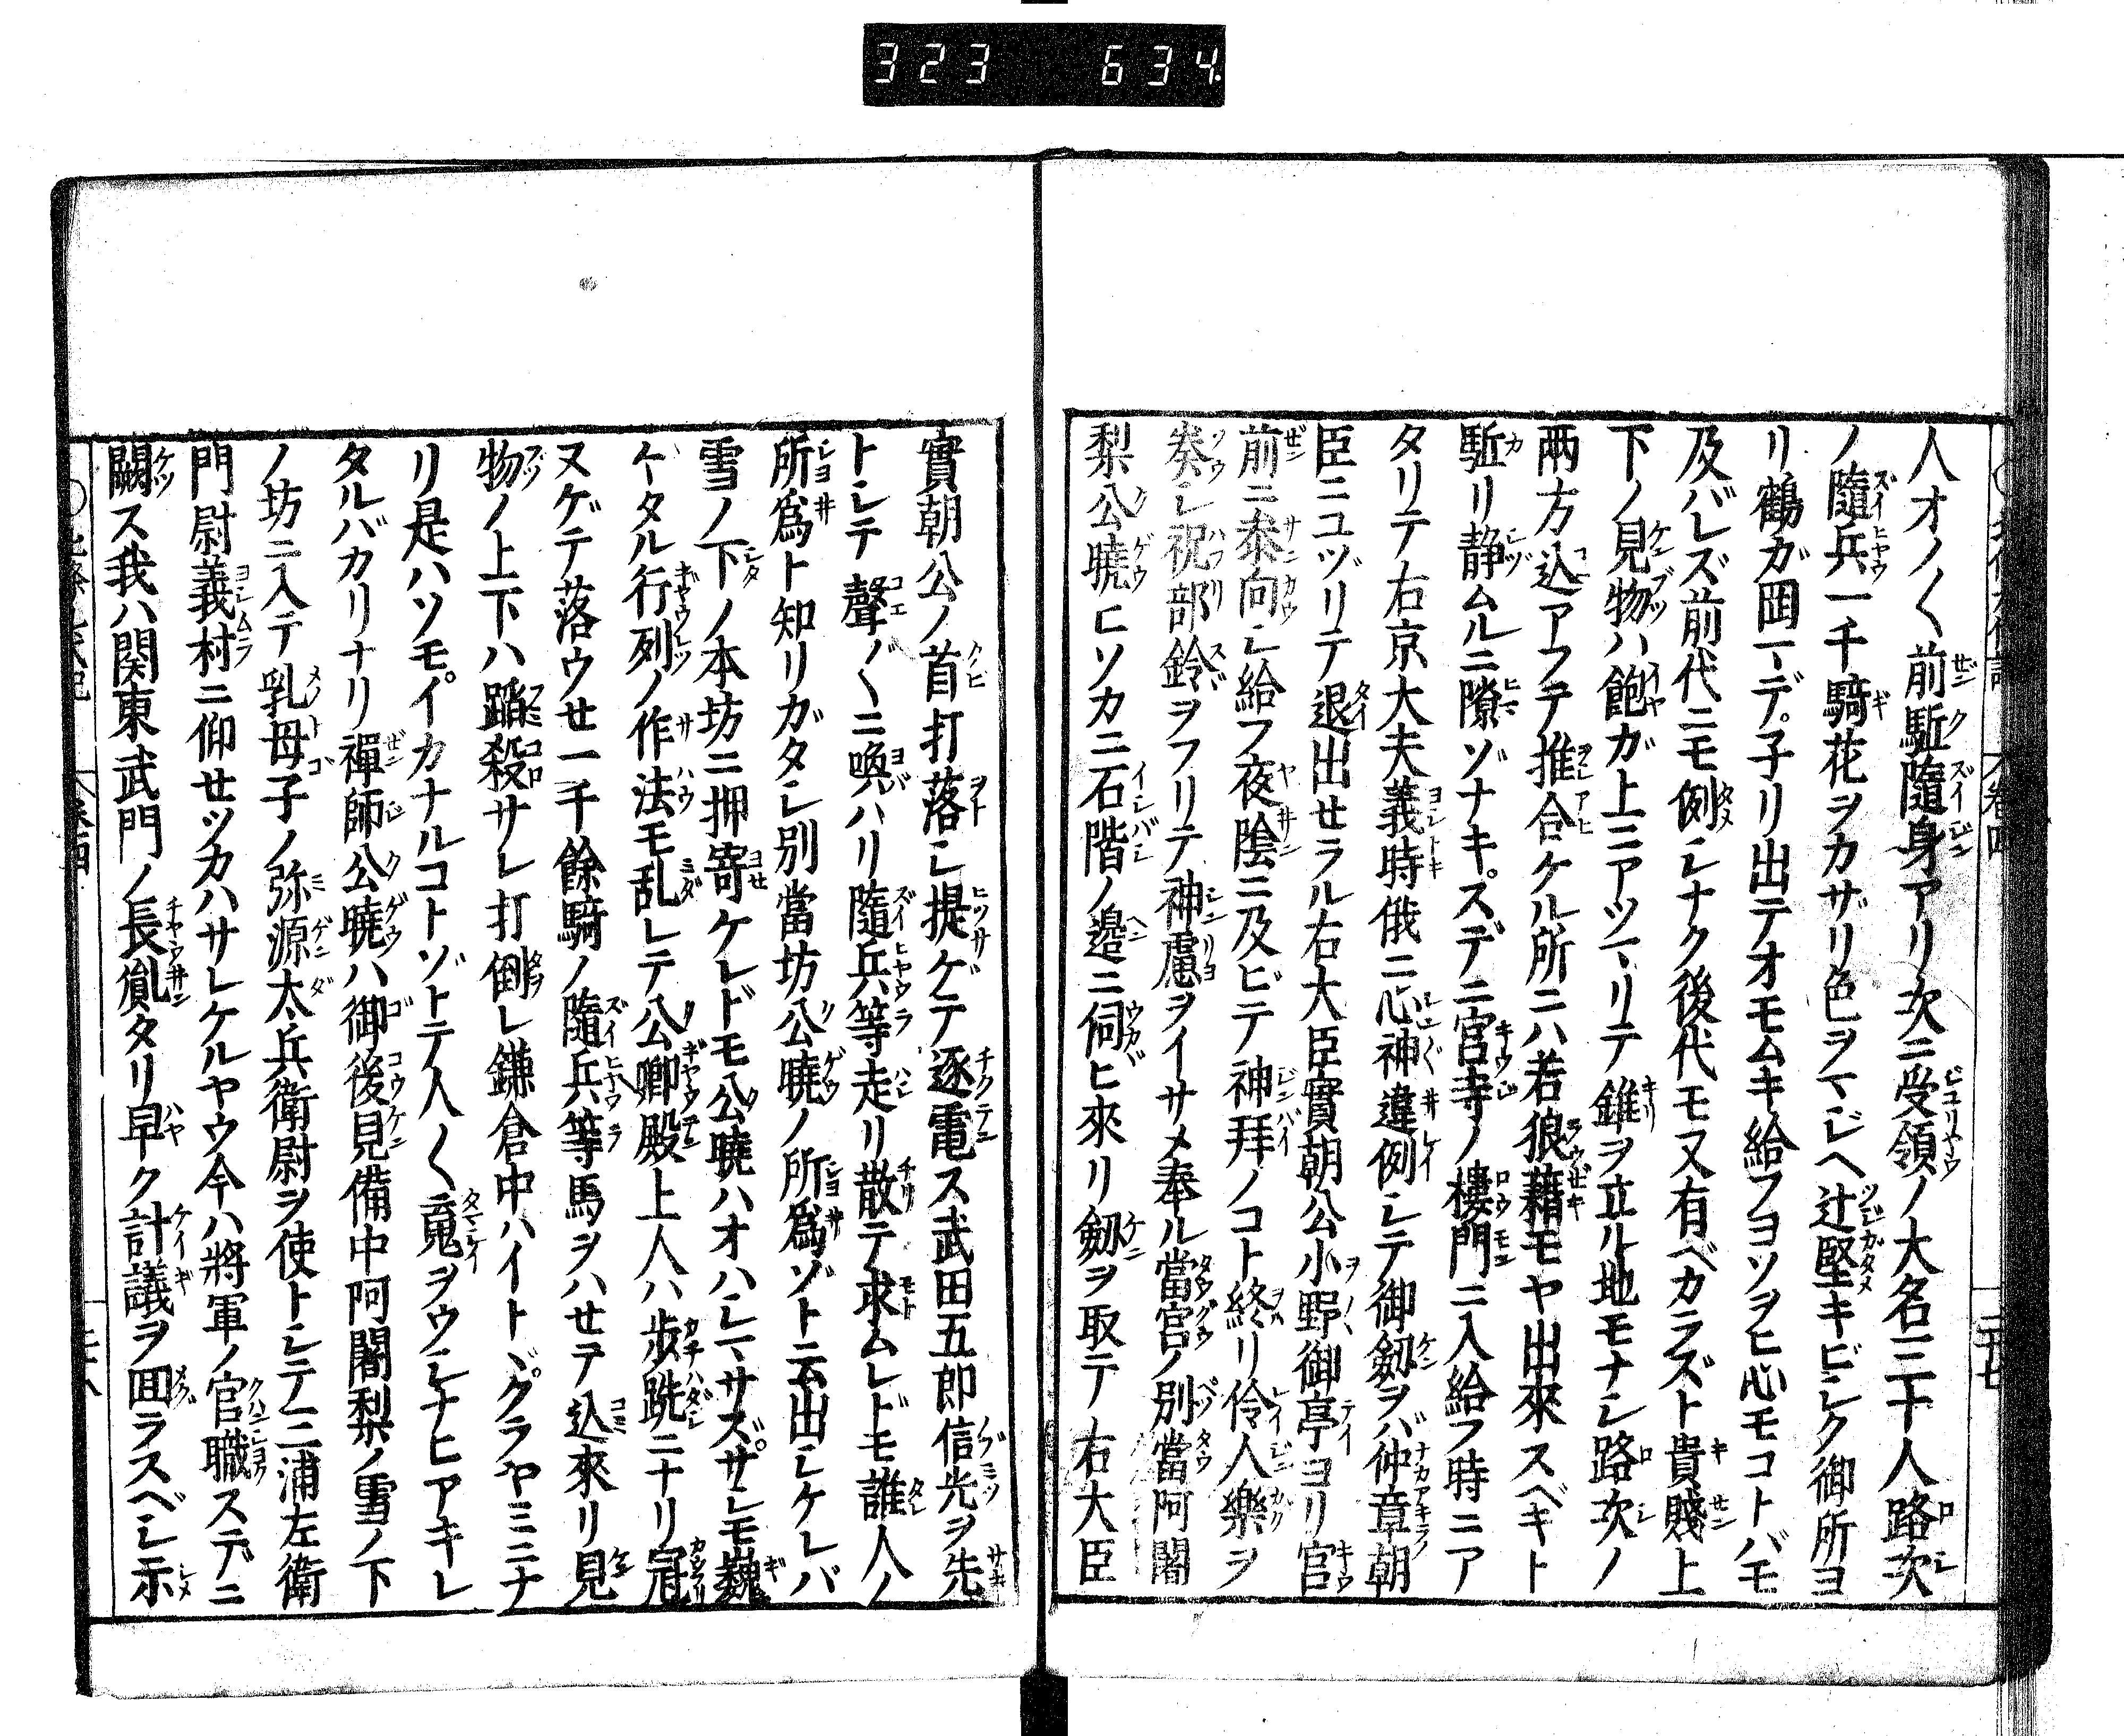 323 634
人オノ〱前駈隨身アリ次ニ受領ノ大名三十人路次
ノ隨兵一千騎花ヲカザリ色ヲマジヘ辻堅キビシク御所ヨ
リ鶴ガ岡マデ子リ出テオモムキ給フヨソヲヒ心モコトバモ
及バレズ前代ニモ例シナク後代モ又有ベカラズト貴賤上
下ノ見物ハ飽ガ上ニアツマリテ錐ヲ立ル地モナシ路次ノ
兩方込アフテ推合ケル所ニハ若狼藉モヤ出來スベキト
駈リ静ムルニ隙ゾナキスデニ宮寺ノ樓門ニ入給フ時ニア
タリテ右京大夫義時俄ニ心神違例シテ御劔ヲバ仲章朝
臣ニユヅリテ退出セラル右大臣實朝公小野御亭ヨリ宮
前ニ参向シ給フ夜陰ニ及ビテ神拜ノコト終リ伶人樂ヲ
奏シ祝部鈴ヲフリテ神慮ヲイサメ奉ル當宮ノ別當阿闍
梨公暁ヒソカニ石階ノ邉ニ伺ヒ來リ劔ヲ取テ右大臣
實朝公ノ首打落シ提ゲテ逐電ス武田五郎信光ヲ先
トシテ聲〴〵ニ喚ハリ隨兵等走リ散テ求ムレドモ誰人ノ
所爲ト知リガタシ別當坊公暁ノ所爲ゾト云出シケレバ
雪ノ下ノ本坊ニ押寄ケレドモ公暁ハオハシマサズサシモ巍
〻タル行列ノ作法モ乱レテ公卿殿上人ハ歩跣ニナリ冠
ヌゲテ落ウセ一千餘騎ノ隨兵等馬ヲハセテ込來リ見
物ノ上下ハ蹈殺サレ打倒レ鎌倉中ハイトヾグラヤミニナ
リ是ハソモイカナルコトゾトテ人〱魂ヲウシナヒアキレ
タルバカリナリ禪師公暁ハ御後見備中阿闍梨ノ雪ノ下
ノ坊ニ入テ乳母子ノ弥源太兵衛尉ヲ使トシテ三浦左衛
門尉義村ニ仰セツカハサレケルヤウ今ハ將軍ノ官職スデニ
闕ス我ハ関東武門ノ長胤タリ早ク計議ヲ回ラスベシ示